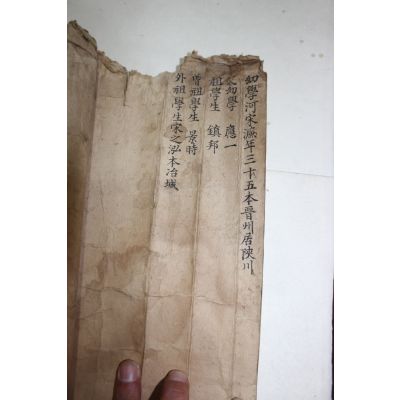 幼學河宋濂年三十五本晋州居陜川
父幼學 應一
祖學生 鎮邦
曾祖學生 景時
外祖學生宋之泓本冶城